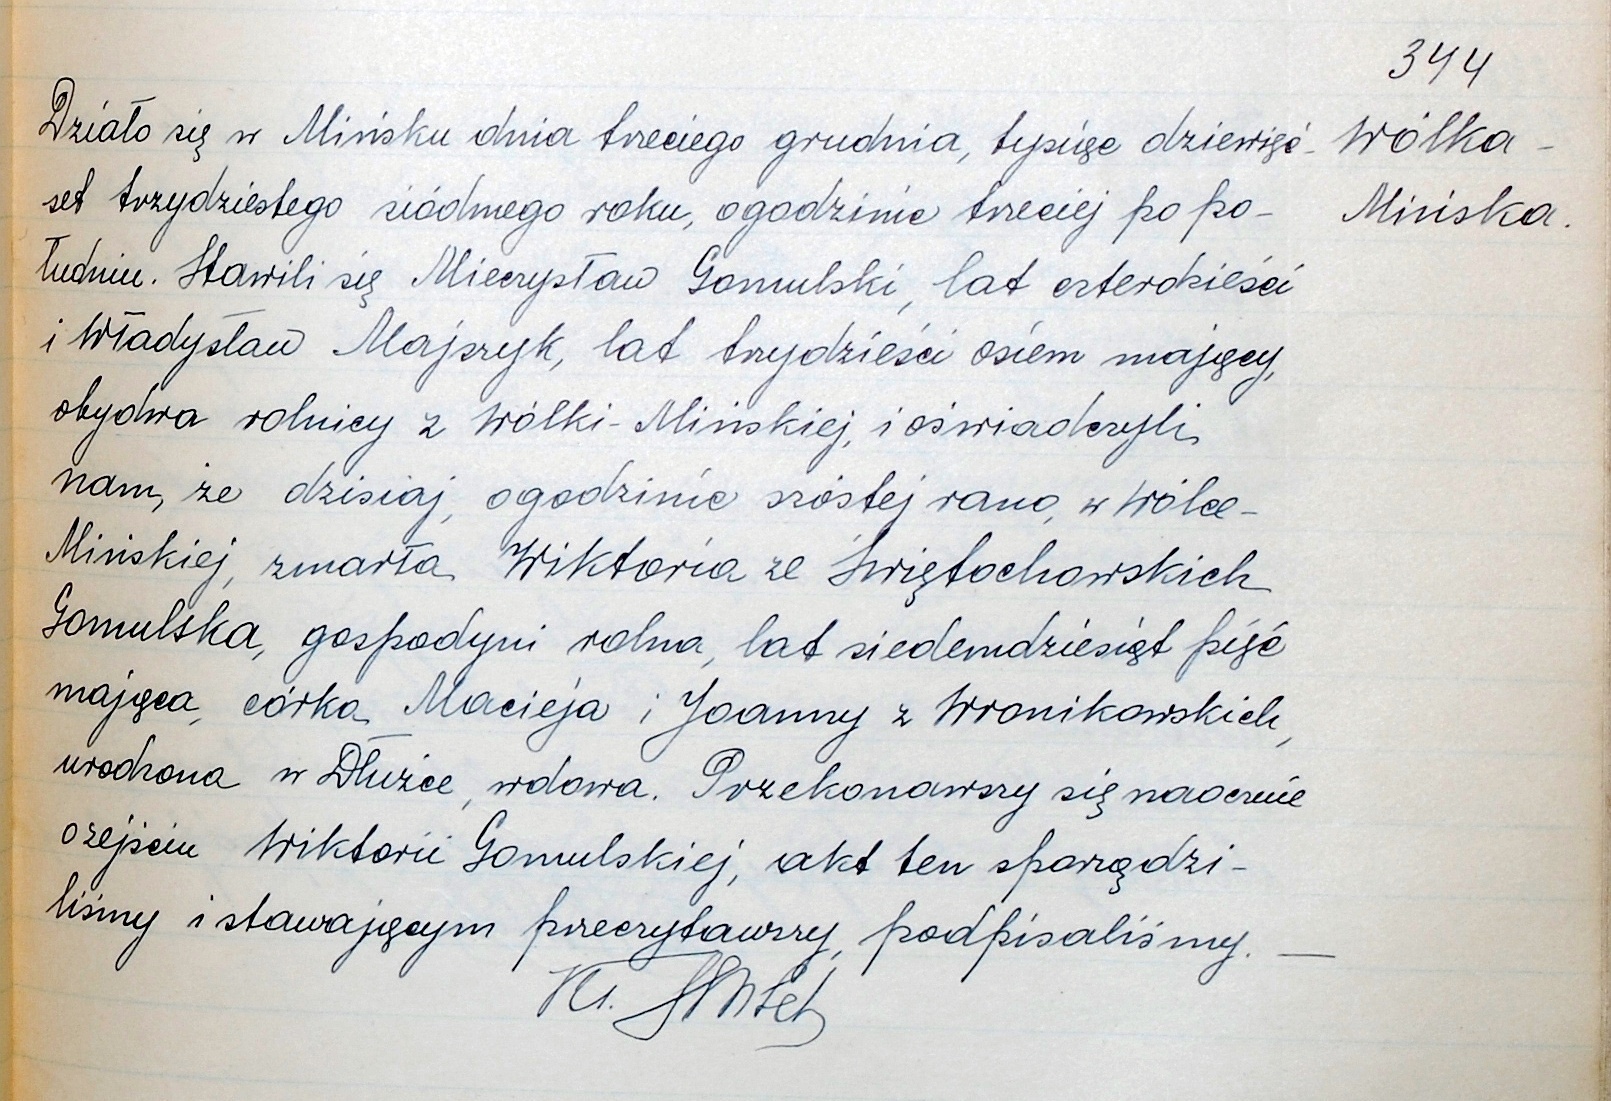 344
Działo się w Mińsku dnia trzeciego grudnia, tysiąc dziewięć-
set trzydziestego siódmego roku, o godzinie trzeciej po po-
łudniu. Stawili się Mieczysław Gomulski, lat czterdzieści
i Władysław Majszyk, lat trzydzieści osiem mający,
obydwa rolnicy z Wólki-Mińskiej, i oświadczyli
nam, że dzisiaj, o godzinie szóstej rano, w Wólce-
Mińskiej, zmarła Wiktoria ze Świętochowskich
Gomulska, gospodyni rolna, lat siedemdziesiąt pięć
mająca, córka Macieja i Joanny z Wronikowskich,
urodzona w Dłużce, wdowa. Przekonawszy się naocznie
o zejściu Wiktorii Gomulskiej, akt ten sporządzi-
liśmy i stawającym przeczytawszy, podpisaliśmy. —
Wólka-
Mińska.